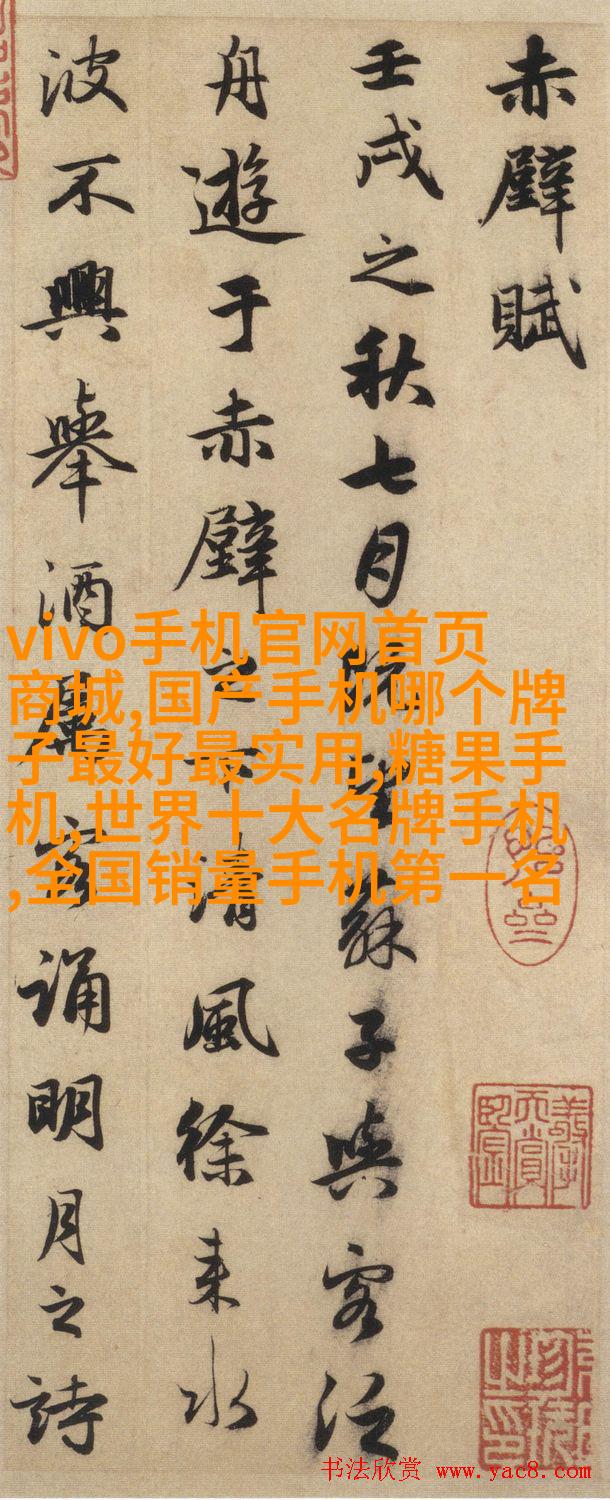 赤壁賦
壬戌之秋七月既望蘇子與客泛
舟遊于赤壁之下清風徐來水
波不興舉酒屬客誦明月之詩
vivo手机官网首页
商城,国产手机哪个牌
子最好最实用,糖果手
机,世界十大名牌手机
,全国销量手机第一名
书法欣赏 www.yac8.com